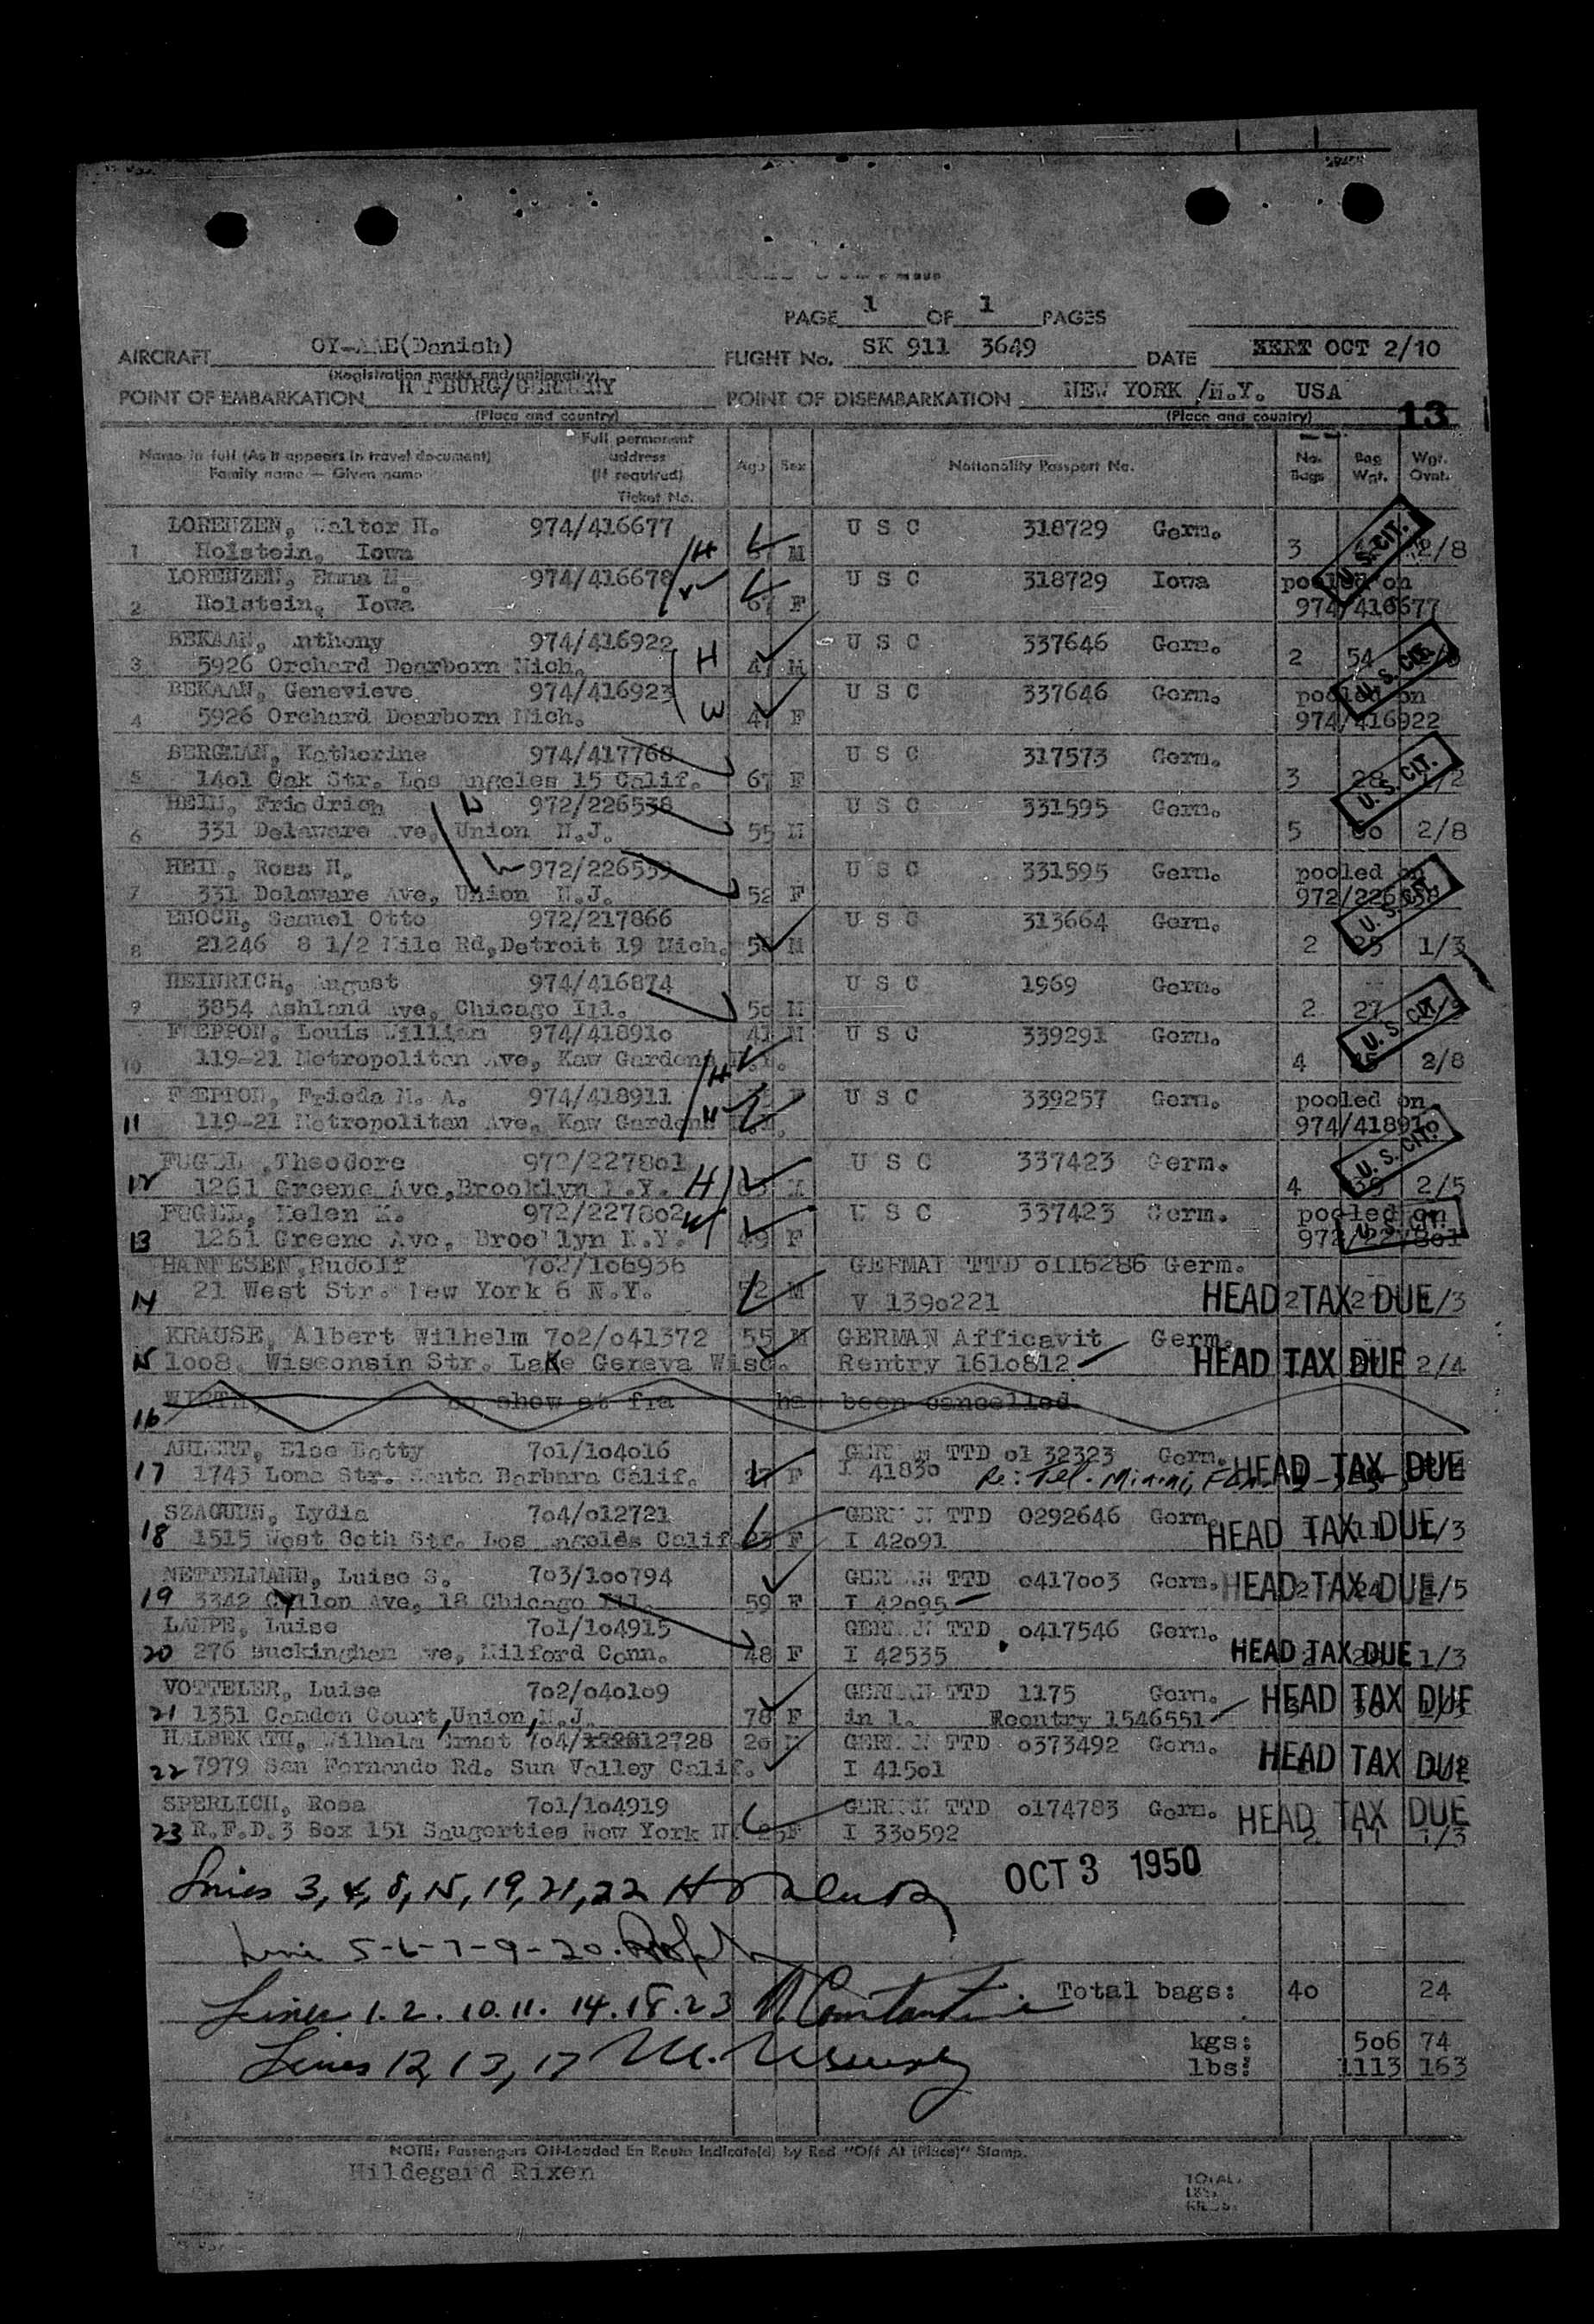 PAGE 1 OF 1 PAGES
AIRCRAFT OY-AAE(Danish) FLIGHT No. SK 911 3649 DATE OCT 2/10
(Registration marks and nationality)
POINT OF EMBARKATION POINT OF DISEMBARKATION NEW YORK /N.Y. USA
(Place and country) (Place and country) 13
Name in full (As it appears in travel document) Full permanent address (if required) Age Sex Nationality Passport No. No. Bags Bag Wgt. Wgt. Ovnt.
Family name — Given name Ticket No.
LORENZEN, Walter H. 974/416677 U S C 318729 Germ. U.S. CIT.
1 Holstein, Iowa H M 3 2/8
LORENZEN, Emma M. 974/416678 U S C 318729 Iowa pooled on
2 Holstein, Iowa 67 F 974/416677
BEKAAN, Anthony 974/416922 H U S C 337646 Germ.
3 5926 Orchard Dearborn Mich. 47 M 2 54 U.S. CIT.
BEKAAN, Genevieve 974/416923 U S C 337646 Germ. pooled on
4 5926 Orchard Dearborn Mich. W 47 F 974/416922
BERGMAN, Katherine 974/417768 U S C 317573 Germ.
5 14o1 Oak Str. Los Angeles 15 Calif. 67 F 3 28 U.S. CIT.
HEIN, Friedrich 972/226538 U S C 331595 Germ.
6 331 Delaware Ave, Union N.J. 55 M 5 2/8
HEIN, Rosa M. 972/226539 U S C 331595 Germ. pooled on
7 331 Delaware Ave, Union N.J. 52 F 972/226538 U.S. CIT.
ENOCH, Samuel Otto 972/217866 U S C 313664 Germ.
8 21246 8 1/2 Mile Rd,Detroit 19 Mich. M 2 25 1/3
HEINRICH, August 974/416874 U S C 1969 Germ.
9 3854 Ashland Ave, Chicago Ill. M 2 27 U.S. CIT.
FREPPON, Louis William 974/41891o 41 M U S C 339291 Germ.
10 119-21 Metropolitan Ave, Kew Gardens H 4 2/8
FREPPON, Frieda M. A. 974/418911 U S C 339257 Germ. pooled on
11 119-21 Metropolitan Ave, Kew Gardens 974/41891o
FUGEL ,Theodore 972/2278o1 U S C 337423 Germ. U.S. CIT.
12 1261 Greene Ave,Brooklyn N.Y. H M 4 2/5
FUGEL, Helen K. 972/2278o2 W U S C 337423 Germ. pooled on
13 1261 Greene Ave, Brooklyn N.Y. 49 F 972/2278o1 U.S. CIT.
HANNESEN,Rudolf 7o2/1o6936 GERMAN TTD o116286 Germ.
14 21 West Str. New York 6 N.Y. 52 M V 139o221 HEAD TAX DUE 1/3
KRAUSE, Albert Wilhelm 7o2/o41372 55 M GERMAN Afficavit Germ.
15 1oo8, Wisconsin Str. Lake Geneva Wisc. Rentry 161o812 HEAD TAX DUE 2/4
16 WIRTH no show at fra has been cancelled
AHLERT, Else Betty 7o1/1o4o16 GERMAN TTD o1 32323 Germ. HEAD TAX DUE
17 1743 Loma Str. Santa Barbara Calif. F I 4183o Re: Tel.
SZAGUNN, Lydia 7o4/o12721 GERMAN TTD 0292646 Germ.
18 1515 West 8oth Str. Los Angeles Calif. 23 F I 42o91 HEAD TAX DUE 1/3
NETTELMANN, Luise S. 7o3/1oo794 GERMAN TTD o417oo3 Germ. HEAD TAX DUE 1/5
19 3342 Ave, 18 Chicago Ill. 59 F I 42o95
LAMPE, Luise 7o1/1o4915 GERMAN TTD o417546 Germ.
20 276 Buckingham Ave, Milford Conn. 48 F I 42535 HEAD TAX DUE 1/3
VOTTELER, Luise 7o2/o4o1o9 GERMAN TTD 1175 Germ. HEAD TAX DUE
21 1351 Camden Court,Union,N.J. 78 F in l. Reentry 1546551
HALBEKATH, Wilhelm Ernst 7o4/ 12728 2o M GERMAN TTD o373492 Germ. HEAD TAX DUE
22 7979 San Fernando Rd. Sun Valley Calif. I 415o1
SPERLICH, Rosa 7o1/1o4919 GERMAN TTD o174783 Germ. HEAD TAX DUE
23 R.F.D.3 Box 151 Saugerties New York 25F I 33o592 2 11 1/3
Lines 3, 4, 8, 15, 19, 21, 22 OCT 3 1950
Line 5-6-7-9-20
Lines 1. 2. 10. 11. 14. 18. 23 Constantine Total bags: 4o 24
Lines 12, 13, 17 kgs: 5o6 74
lbs: 1113 163
NOTE: Passengers Off-Loaded En Route Indicate(d) by Red "Off At (Place)" Stamp.
Hildegard Rixen
TOTAL